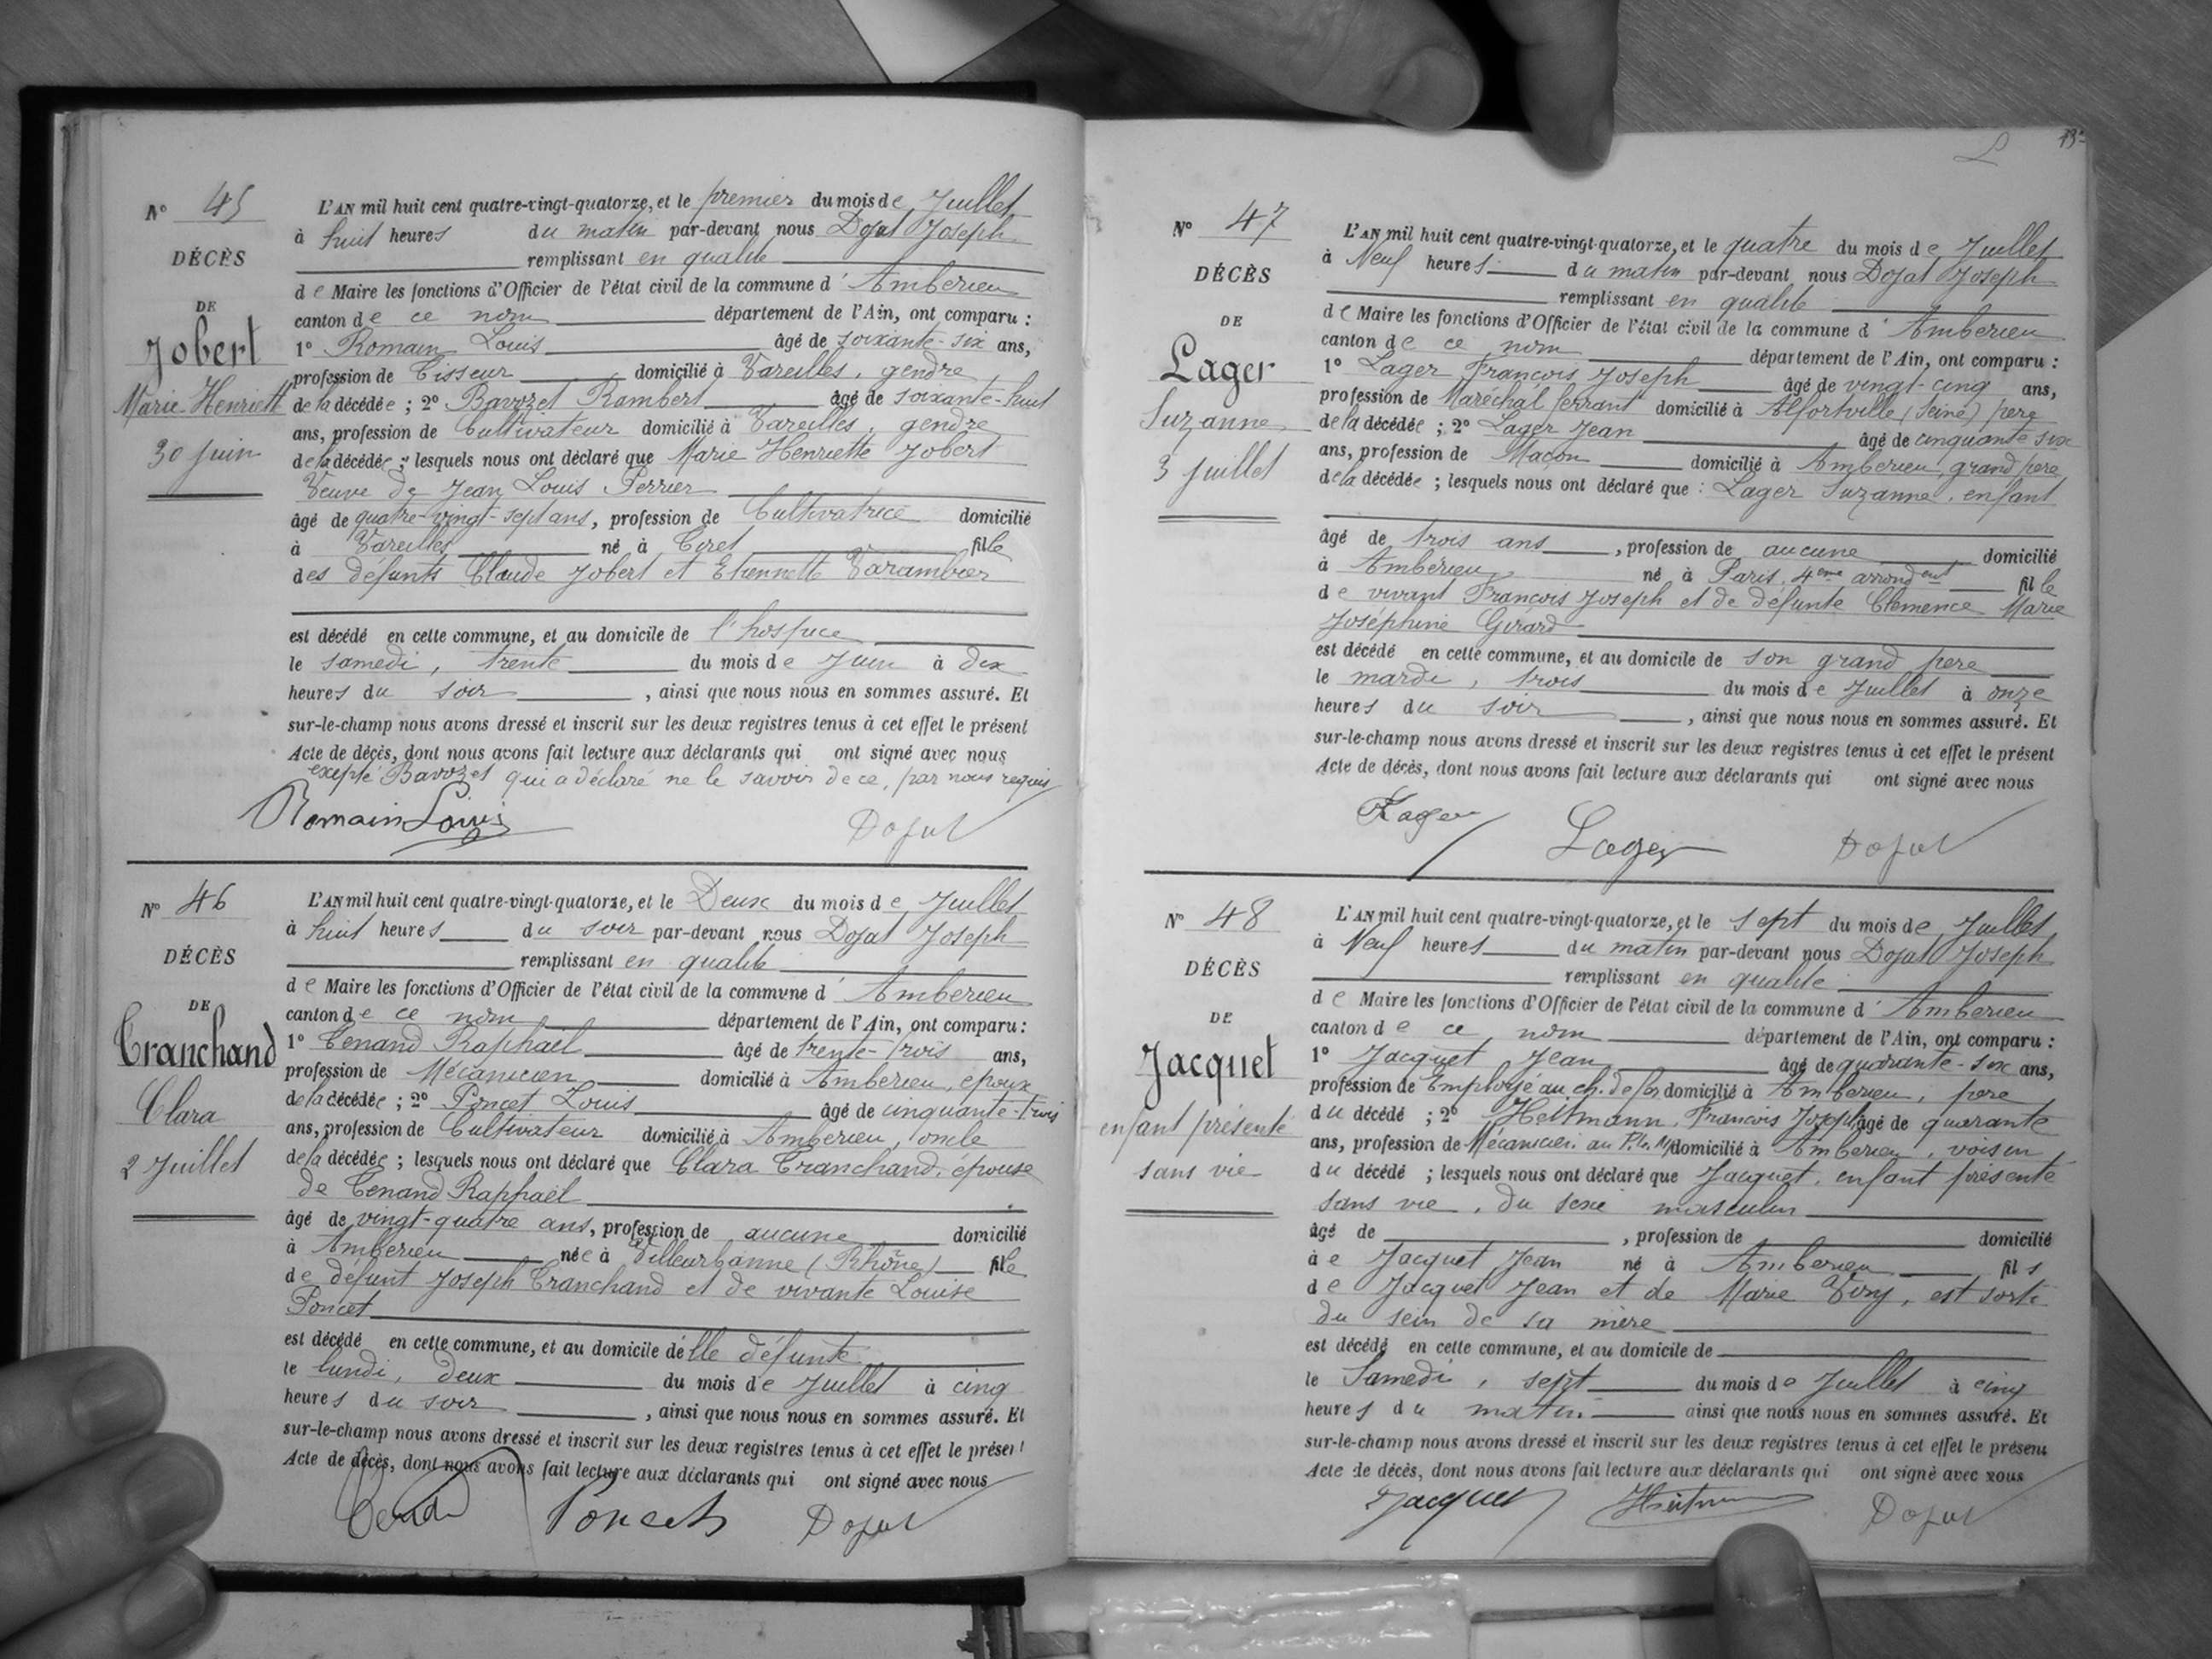 N° 45
DÉCÈS
DE
Jobert
Marie Henriette
30 juin
L'AN mil huit cent quatre-vingt-quatorze, et le premier du mois de Juillet
à huit heures du matin par-devant nous Dojat Joseph
remplissant en qualité
de Maire les fonctions d'Officier de l'état civil de la commune d'Amberieu
canton de ce nom département de l'Ain, ont comparu :
1° Romain Louis âgé de soixante-six ans,
profession de Tisseur domicilié à Vareilles, gendre
de la décédée ; 2° Bavozet Rambert âgé de soixante-huit
ans, profession de Cultivateur domicilié à Vareilles, gendre
de la décédée ; lesquels nous ont déclaré que Marie Henriette Jobert
Veuve de Jean Louis Perrier
âgé de quatre-vingt-sept ans, profession de Cultivatrice domicilié
à Vareilles né à Ciret fille
des défunts Claude Jobert et Etiennette Varambier
est décédé en cette commune, et au domicile de l'hospice
le samedi, trente du mois de Juin à dix
heures du soir, ainsi que nous nous en sommes assuré. Et
sur-le-champ nous avons dressé et inscrit sur les deux registres tenus à cet effet le présent
Acte de décès, dont nous avons fait lecture aux déclarants qui ont signé avec nous
excepté Bavozet qui a déclaré ne le savoir de ce, par nous requis
Romain Louis Dojat
N° 46
DÉCÈS
DE
Tranchand
Clara
2 Juillet
L'AN mil huit cent quatre-vingt-quatorze, et le Deux du mois de Juillet
à huit heures du soir par-devant nous Dojat Joseph
remplissant en qualité
de Maire les fonctions d'Officier de l'état civil de la commune d'Amberieu
canton de ce nom département de l'Ain, ont comparu :
1° Tenand Raphaël âgé de trente-trois ans,
profession de Mécanicien domicilié à Amberieu, epoux
de la décédée ; 2° Poncet Louis âgé de cinquante-trois
ans, profession de Cultivateur domicilié à Amberieu, oncle
de la décédée ; lesquels nous ont déclaré que Clara Tranchand, épouse
de Tenand Raphaël
âgé de vingt-quatre ans, profession de aucune domicilié
à Amberieu née à Villeurbanne (Rhône) fille
de défunt Joseph Tranchand et de vivante Louise
Poncet
est décédé en cette commune, et au domicile de lle défunte
le lundi, deux du mois de Juillet à cinq
heures du soir, ainsi que nous nous en sommes assuré. Et
sur-le-champ nous avons dressé et inscrit sur les deux registres tenus à cet effet le présent
Acte de décès, dont nous avons fait lecture aux déclarants qui ont signé avec nous
Poncet Dojat
N° 47
DÉCÈS
DE
Lager
Suzanne
3 Juillet
L'AN mil huit cent quatre-vingt-quatorze, et le quatre du mois de Juillet
à Neuf heures du matin par-devant nous Dojat Joseph
remplissant en qualité
de Maire les fonctions d'Officier de l'état civil de la commune d'Amberieu
canton de ce nom département de l'Ain, ont comparu :
1° Lager François Joseph âgé de vingt-cinq ans,
profession de Maréchal ferrant domicilié à Alfortville (Seine) père
de la décédée ; 2° Lager Jean âgé de cinquante six
ans, profession de Maçon domicilié à Amberieu, grand père
de la décédée ; lesquels nous ont déclaré que : Lager Suzanne, enfant
âgé de trois ans, profession de aucune domicilié
à Amberieu né à Paris, 4eme arrondent fille
de vivant François Joseph et de défunte Clemence Marie
Joséphine Girard
est décédé en cette commune, et au domicile de son grand pere
le mardi, trois du mois de Juillet à onze
heures du soir, ainsi que nous nous en sommes assuré. Et
sur-le-champ nous avons dressé et inscrit sur les deux registres tenus à cet effet le présent
Acte de décès, dont nous avons fait lecture aux déclarants qui ont signé avec nous
Lager Lager Dojat
N° 48
DÉCÈS
DE
Jacquet
enfant présenté
sans vie
L'AN mil huit cent quatre-vingt-quatorze, et le sept du mois de Juillet
à Neuf heures du matin par-devant nous Dojat Joseph
remplissant en qualité
de Maire les fonctions d'Officier de l'état civil de la commune d'Amberieu
canton de ce nom département de l'Ain, ont comparu :
1° Jacquet Jean âgé de quarante-six ans,
profession de Employé au ch. de fer domicilié à Amberieu, père
du décédé ; 2° Heitmann, François Joseph âgé de quarante
ans, profession de Mécanicien au P.L.M domicilié à Amberieu, voisin
du décédé ; lesquels nous ont déclaré que Jacquet, enfant présenté
sans vie, du sexe masculin
âgé de , profession de domicilié
à e Jacquet Jean né à Amberieu fils
de Jacquet Jean et de Marie Viry, est sorti
du sein de sa mère
est décédé en cette commune, et au domicile de
le Samedi, sept du mois de Juillet à cinq
heures du matin ainsi que nous nous en sommes assuré. Et
sur-le-champ nous avons dressé et inscrit sur les deux registres tenus à cet effet le présent
Acte de décès, dont nous avons fait lecture aux déclarants qui ont signé avec nous
Jacquet Heitmann Dojat